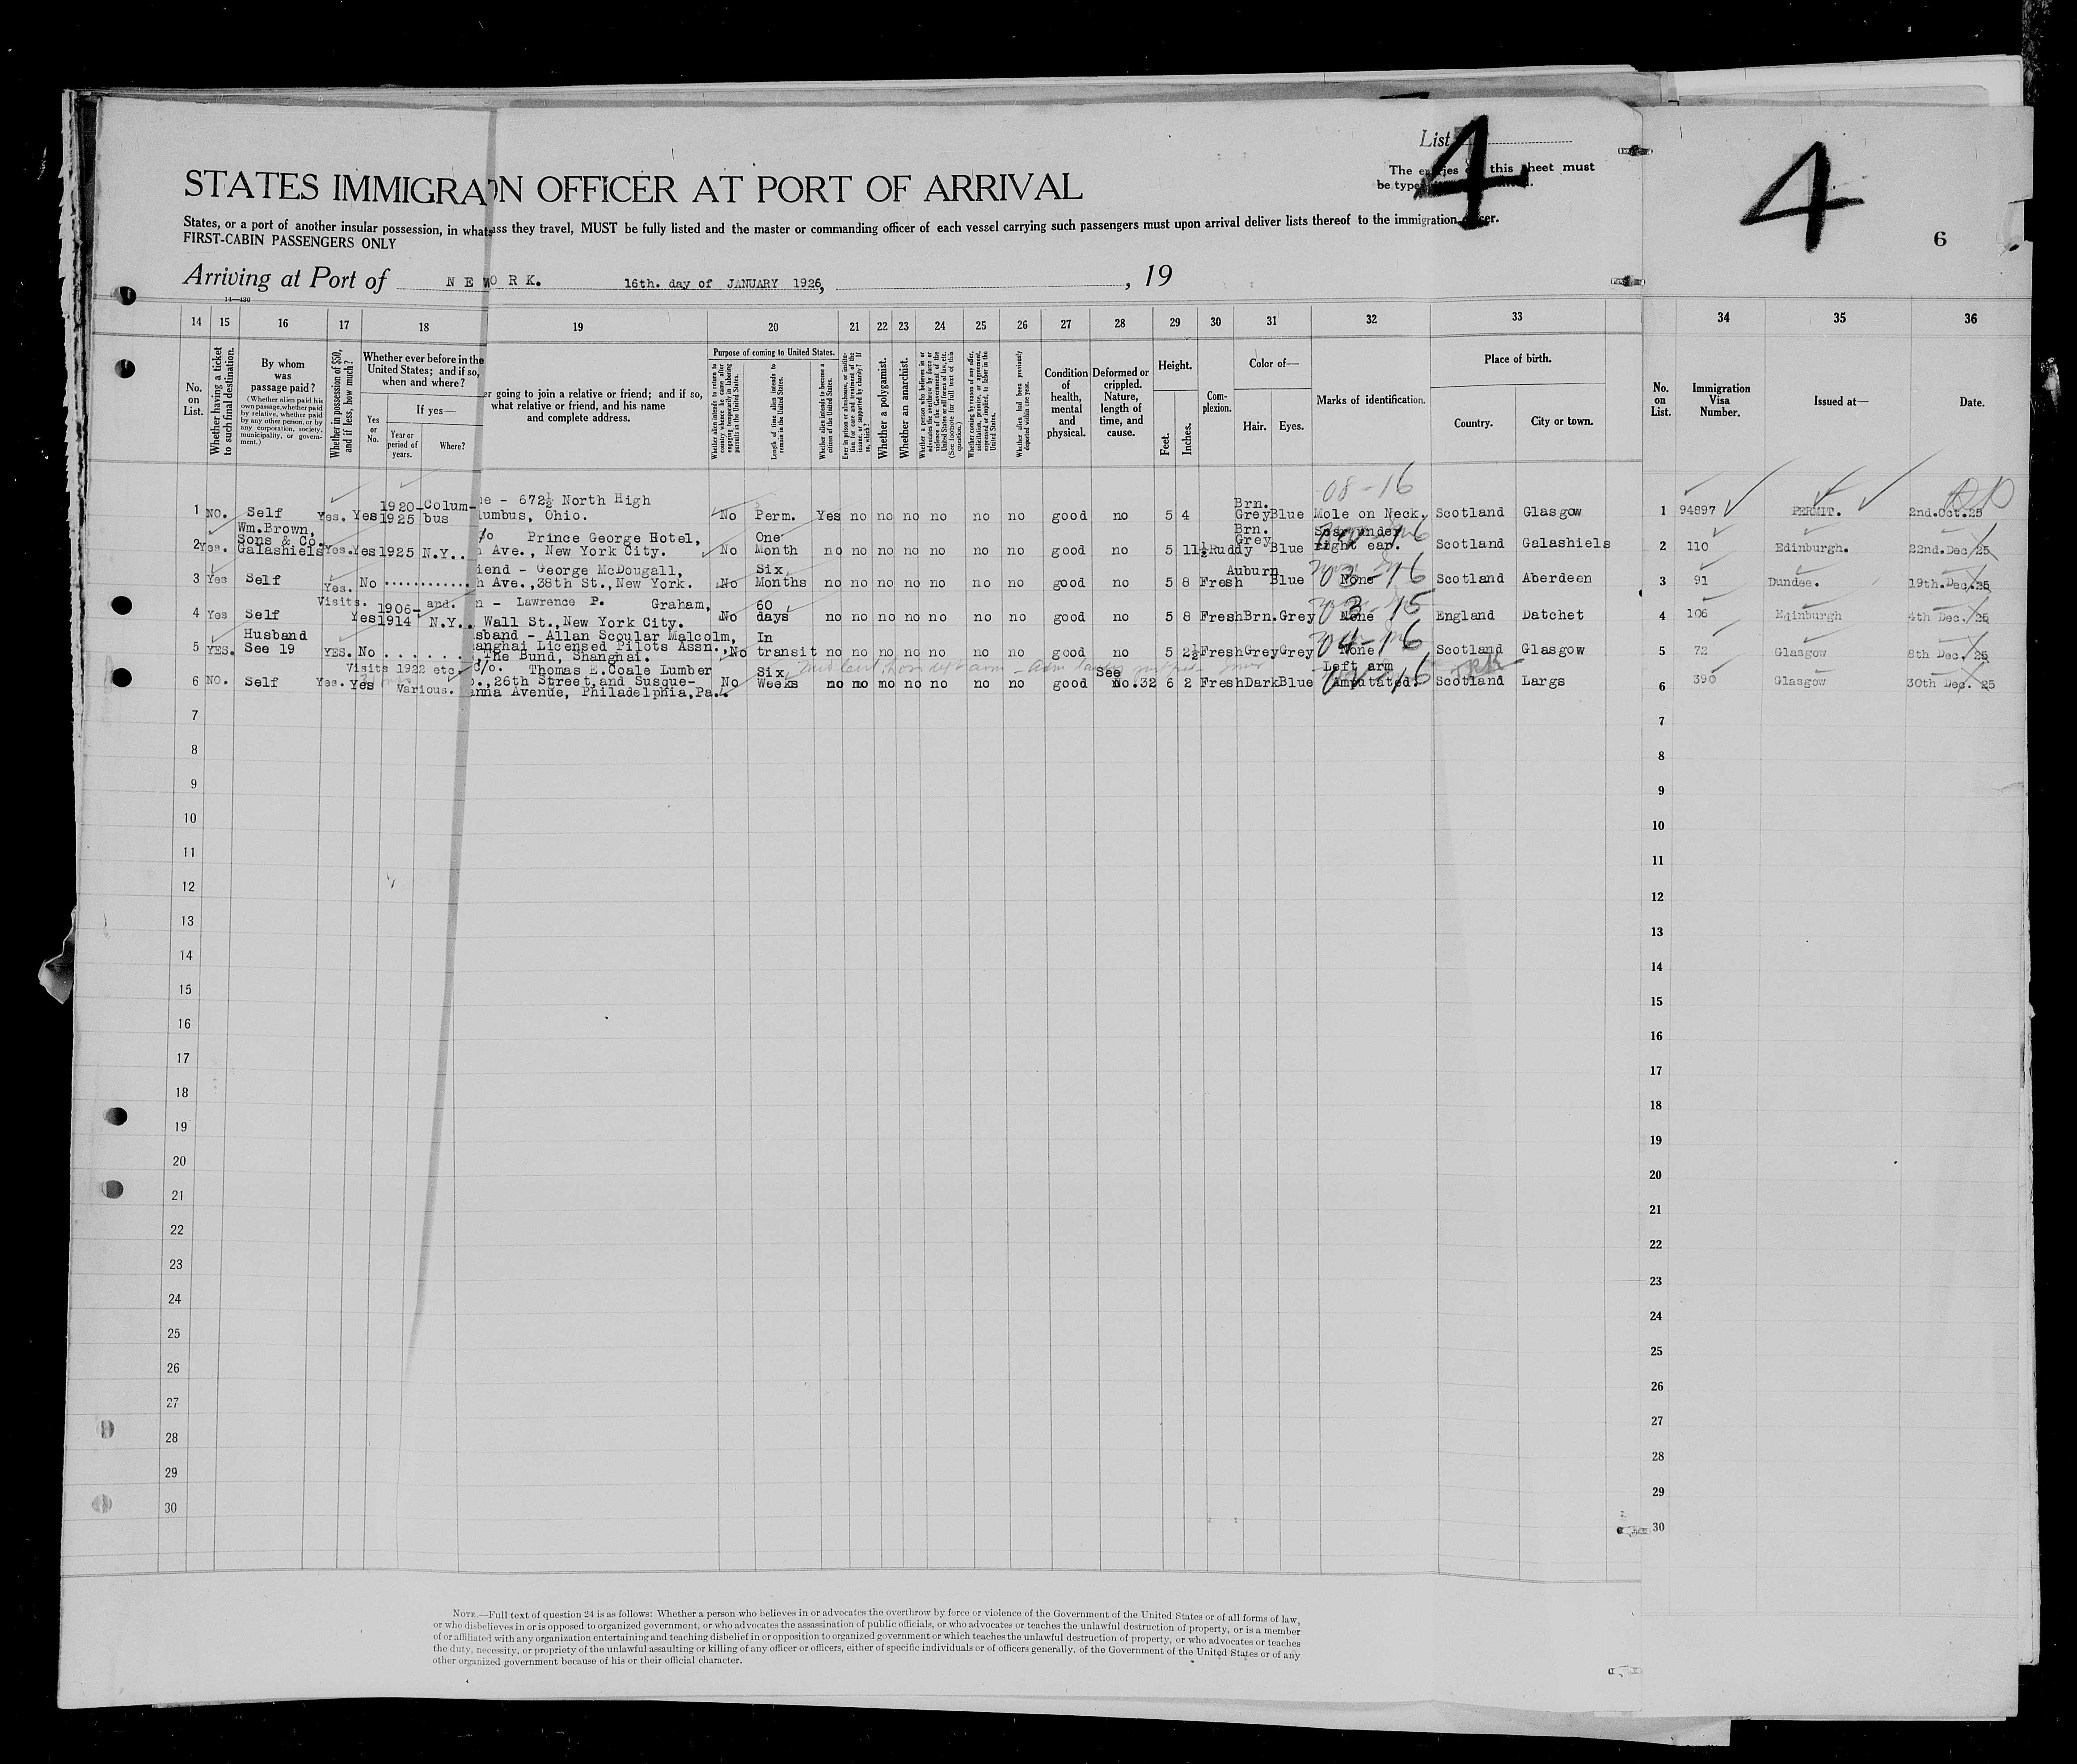 List
4
4
6
The entries on this sheet must
be type
STATES IMMIGRA
ON OFFICER AT PORT OF ARRIVAL
States, or a port of another insular possession, in what
ass they travel, MUST be fully listed and the master or commanding officer of each vessel carrying such passengers must upon arrival deliver lists thereof to the immigration officer.
FIRST-CABIN PASSENGERS ONLY
Arriving at Port of N E W O R K. 16th. day of JANUARY 1926, , 19
14—430
14 15 16 17 18 19 20 21 22 23 24 25 26 27 28 29 30 31 32 33 34 35 36
No. on List.
Whether having a ticket to such final destination.
By whom was passage paid?
(Whether alien paid his own passage, whether paid by relative, whether paid by any other person, or by any corporation, society, municipality, or government.)
Whether in possession of $50, and if less, how much?
Whether ever before in the United States; and if so, when and where?
Yes or No.
If yes—
Year or period of years.
Where?
er going to join a relative or friend; and if so, what relative or friend, and his name and complete address.
Purpose of coming to United States.
Whether alien intends to return to country whence he came after engaging temporarily in laboring pursuits in the United States.
Length of time alien intends to remain in the United States.
Whether alien intends to become a citizen of the United States.
Ever in prison or almshouse, or institution for care and treatment of the insane, or supported by charity? If so, which?
Whether a polygamist.
Whether an anarchist.
Whether a person who believes in or advocates the overthrow by force or violence of the Government of the United States or all forms of law, etc. (See footnote for full text of this question.)
Whether coming by reason of any offer, solicitation, promise, or agreement, expressed or implied, to labor in the United States.
Whether alien had been previously deported within one year.
Condition of health, mental and physical.
Deformed or crippled. Nature, length of time, and cause.
Height.
Feet. Inches.
Complexion.
Color of—
Hair. Eyes.
Marks of identification.
Place of birth.
Country. City or town.
No. on List.
Immigration Visa Number.
Issued at—
Date.
08-16
1 NO. Self Yes. Yes 1920-1925 Columbus e - 672½ North High lumbus, Ohio. No Perm. Yes no no no no no no good no 5 4 Brn. Grey Blue Mole on Neck. Scotland Glasgow 1 94897 PERMIT. 2nd.Oct.25
2 Yes. Wm.Brown, Sons & Co. Galashiels Yes. Yes 1925 N.Y.. /o Prince George Hotel, h Ave., New York City. No One Month no no no no no no no good no 5 11½ Ruddy Brn. Grey Blue Scar under right ear. Scotland Galashiels 2 110 Edinburgh. 22nd.Dec.25
3 Yes Self Yes. No ............ iend - George McDougall, h Ave.,38th St.,New York. No Six Months no no no no no no no good no 5 8 Fresh Auburn Blue None 03-16 Scotland Aberdeen 3 91 Dundee. 19th.Dec.25
4 Yes Self Yes Visits. 1906- and. 1914 N.Y.. n - Lawrence P. Graham, Wall St.,New York City. No 60 days no no no no no no no good no 5 8 Fresh Brn. Grey None 03-15 England Datchet 4 106 Edinburgh 4th Dec. 25
5 YES. Husband See 19 YES. No ...... sband - Allan Scoular Malcolm, anghai Licensed Pilots Assn., The Bund, Shanghai. No In transit no no no no no no no good no 5 2½ Fresh Grey Grey None 04-16 Scotland Glasgow 5 72 Glasgow 8th Dec. 25
6 NO. Self Yes. Yes Visits 1922 etc. Various. C/o. Thomas E.Coale Lumber o.,26th Street,and Susque- anna Avenue, Philadelphia,Pa. No Six Weeks no no no no no no no good See No.32 6 2 Fresh Dark Blue Left arm Amputated. Scotland Largs 6 396 Glasgow 30th Dec. 25
7 7
8 8
9 9
10 10
11 11
12 12
13 13
14 14
15 15
16 16
17 17
18 18
19 19
20 20
21 21
22 22
23 23
24 24
25 25
26 26
27 27
28 28
29 29
30 30
NOTE.—Full text of question 24 is as follows: Whether a person who believes in or advocates the overthrow by force or violence of the Government of the United States or of all forms of law,
or who disbelieves in or is opposed to organized government, or who advocates the assassination of public officials, or who advocates or teaches the unlawful destruction of property, or is a member
of or affiliated with any organization entertaining and teaching disbelief in or opposition to organized government or which teaches the unlawful destruction of property, or who advocates or teaches
the duty, necessity, or propriety of the unlawful assaulting or killing of any officer or officers, either of specific individuals or of officers generally, of the Government of the United States or of any
other organized government because of his or their official character.